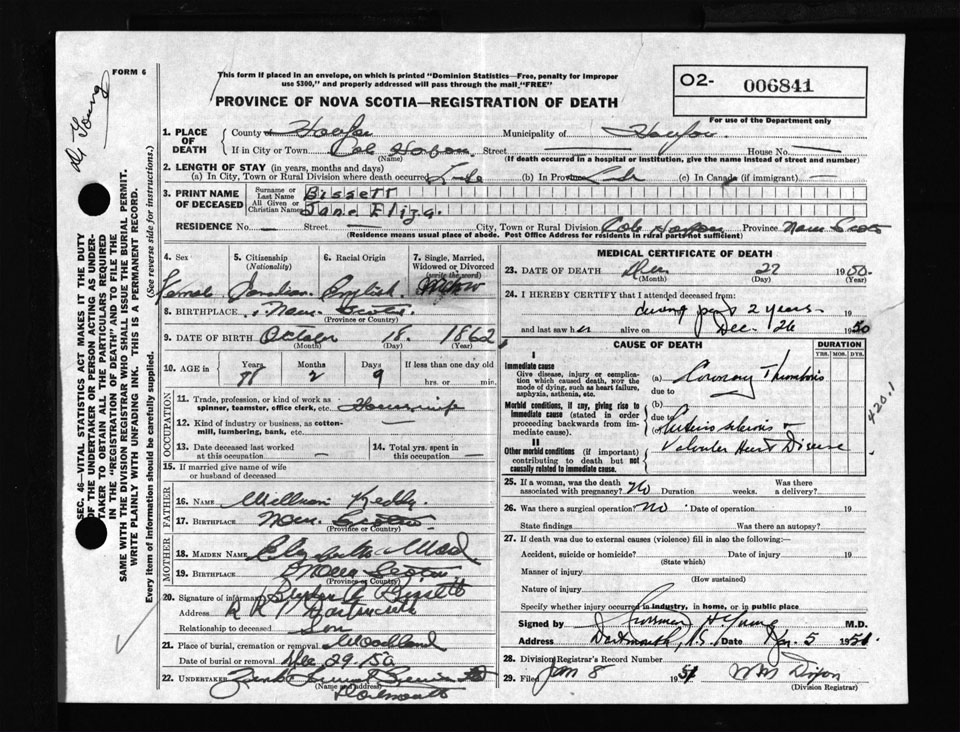 Dr Young
FORM 6
This form if placed in an envelope, on which is printed "Dominion Statistics—Free, penalty for improper
use $300," and properly addressed will pass through the mail "FREE"
O2- 006841
For use of the Department only
PROVINCE OF NOVA SCOTIA—REGISTRATION OF DEATH
SEC. 46—VITAL STATISTICS ACT MAKES IT THE DUTY
OF THE UNDERTAKER OR PERSON ACTING AS UNDER-
TAKER TO OBTAIN ALL THE PARTICULARS REQUIRED
IN THE "REGISTRATION OF DEATH" AND TO FILE THE
SAME WITH THE DIVISION REGISTRAR WHO SHALL ISSUE THE BURIAL PERMIT.
WRITE PLAINLY WITH UNFADING INK. THIS IS A PERMANENT RECORD.
Every item of information should be carefully supplied. (See reverse side for instructions.)
1. PLACE OF DEATH
County of Halifax Municipality of Halifax
If in City or Town Cole Harbour Street House No.
(Name) (If death occurred in a hospital or institution, give the name instead of street and number)
2. LENGTH OF STAY (in years, months and days)
(a) In City, Town or Rural Division where death occurred Life (b) In Province Life (c) In Canada (if immigrant) —
3. PRINT NAME OF DECEASED
Surname or Last Name Bissett
All Given or Christian Names Jane Eliza.
RESIDENCE No. — Street — City, Town or Rural Division Cole Harbour Province Nova Scotia
(Residence means usual place of abode. Post Office Address for residents in rural parts not sufficient)
4. Sex 5. Citizenship (Nationality) 6. Racial Origin 7. Single, Married, Widowed or Divorced (write the word)
Female Canadian English Widow
8. BIRTHPLACE Nova Scotia
(Province or Country)
9. DATE OF BIRTH October 18. 1862
(Month) (Day) (Year)
10. AGE in Years Months Days If less than one day old
88 2 9 hrs. or min.
OCCUPATION
11. Trade, profession, or kind of work as spinner, teamster, office clerk, etc. Housewife
12. Kind of industry or business, as cotton-mill, lumbering, bank, etc. —
13. Date deceased last worked at this occupation — 14. Total yrs. spent in this occupation —
15. If married give name of wife or husband of deceased
FATHER
16. NAME William
17. BIRTHPLACE Nova Scotia
(Province or Country)
MOTHER
18. MAIDEN NAME Elizabeth
19. BIRTHPLACE Nova Scotia
(Province or Country)
20. Signature of informant Bissett
Address R R 1 Dartmouth
Relationship to deceased Son
21. Place of burial, cremation or removal Woodland
Date of burial or removal Dec 29-50
22. UNDERTAKER
(Name and address)
Dartmouth
MEDICAL CERTIFICATE OF DEATH
23. DATE OF DEATH Dec 27 1950.
(Month) (Day) (Year)
24. I HEREBY CERTIFY that I attended deceased from:
during past 2 years 19
and last saw her alive on Dec. 26 1950
CAUSE OF DEATH DURATION
YRS. MOS. DYS.
I
Immediate cause
Give disease, injury or complication which caused death, NOT the mode of dying, such as heart failure, asphyxia, asthenia, etc.
(a) Coronary Thrombosis
due to
Morbid conditions, if any, giving rise to immediate cause (stated in order proceeding backwards from immediate cause).
(b)
due to
(c) Arteriosclerosis +
II
Other morbid conditions (if important) contributing to death but not causally related to immediate cause.
Valvular Heart Disease
4201
25. If a woman, was the death associated with pregnancy? No Duration weeks. Was there a delivery?
26. Was there a surgical operation? No. Date of operation 19
State findings Was there an autopsy?
27. If death was due to external causes (violence) fill in also the following:
Accident, suicide or homicide? Date of injury 19
(State which)
Manner of injury
(How sustained)
Nature of injury
Specify whether injury occurred in industry, in home, or in public place
Signed by H. Young M.D.
Address Dartmouth, N.S. Date Jan. 5 1951.
28. Division Registrar's Record Number
29. Filed Jan 8 1951 Dixon
(Division Registrar)